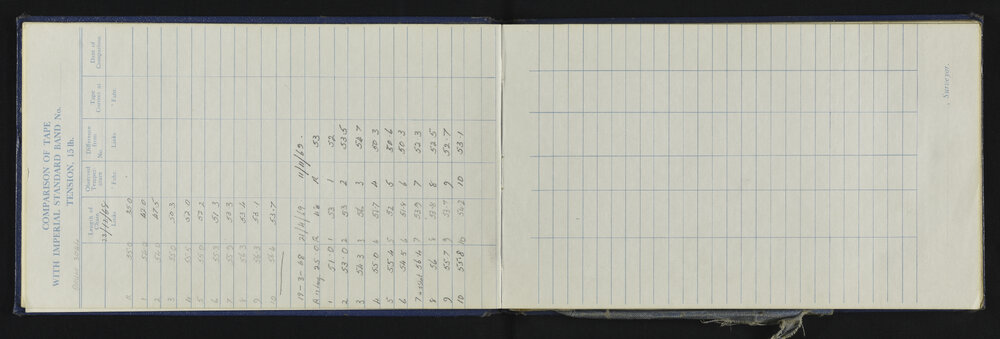 COMPARISON OF TAPE
WITH IMPERIAL STANDARD BAND No.
TENSION, 15 lb.
Length of Chain Links
Observed Temper- ature ° Fahr.
Difference from No. Links
Tape Correct at ° Fahr.
Date of Comparison
R 35.0
1 54.0
2 54.0 47.5
3 55.0 50.3
4 55.5 52.0
5 55.0 52.2
6 55.5 51.3
7 53.3
8 56.3 53.4
9 56.3 53.1
10 56.6 53.7
19-3-68 21/4/69 11/11/69.
R 25.0 R 48 R 53
1 51.0 1 53 1 52
2 53.0 2 53 2 53.5
3 54.3 3 56 3 52.7
4 55.0 4 51.7 4 50.3
5 55.4 5 52 5 50.6
6 54.5 6 51.8 6 50.3
7 56.4 7 53.9 7 52.3
8 56 8 53.8 8 52.5
9 55.7 9 53.9 9 52.7
10 55.8 10 54.2 10 53.1
, Surveyor.